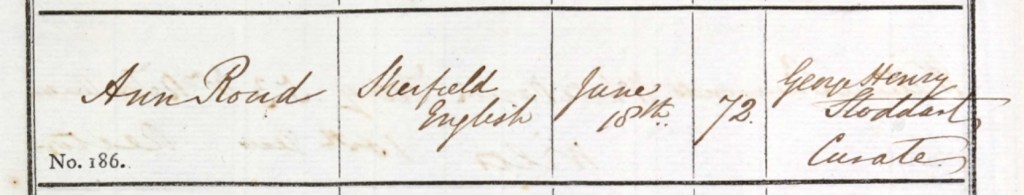 Ann Roud
No. 186.
Sherfield
English
June
18th.
72.
George Henry
Stoddart
Curate.